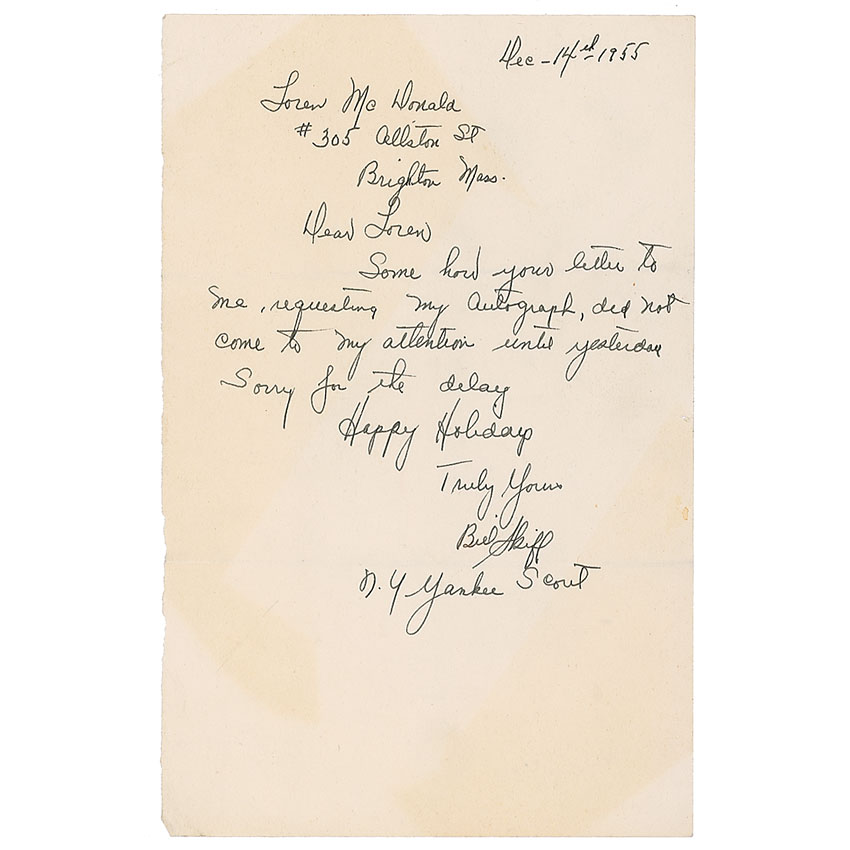 Dec - 14ed - 1955
Loren Mc Donald
#305 Allston St
Brighton Mass.
Dear Loren
Some how your letter to
me, requesting my Autograph, did not
come to my attention until yesterday
Sorry for the delay
Happy Holidays
Truly Yours
Bill Skiff
N. Y Yankee Scout